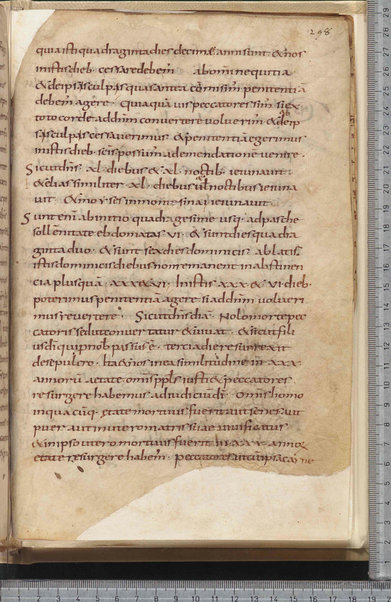 298
quia isti quadraginta dies decimae anni sunt. & nos
in istis dieb. cessare debem ab omni nequitia
& de ipsas culpas quas antea comisim penitentia
debem agere. Quia qua vis peccatores sim si ex
toto corde ad dnm convertere voluerim & de ip
sas culpas cessaverimus & penitentia egerimus
in istis dieb. sci possum ad emendatione venire.
Sicut dns xl. diebus & xl. noctib. ieiunavit.
& elias similiter xl. diebus vel noctibus ieiuna
vit. & moyses in monte sinai ieiunavit.
Sunt eni ab initio quadragesime usq. ad pasche
sollenitate ebdomatas vi. & sunt dies quadra
ginta duo. & sunt sex dies dominicis ablatis.
istis dominicis diebus non remanent in abstinen
cia plus qua xxxvi. In istis xxx & vi dieb.
poterimus penitentia agere si ad dnm volueri
mus revertere. Sicut dns dix. Nolo morte pec
catoris sed ut convertatur & vivat. & sicut fili
us di qui p nob passus e. tercia die resurrexit
de sepulcro. Ita & nos in ea similitudine in xxx
annoru aetate omis ppls iusti & peccatores.
resurgere habemus ad iudiciu di. Omis homo
in qua cuiq. etate mortuus fuerit aut senex aut
puer aut in utero matris suae vivificatus
& in ipso utero mortuus fuerit In xxx annox
etate resurgere habem. peccatores